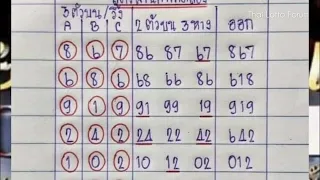 Thai Lotto Tips
3ตัวบน/วิ่ง 2 ตัวบน 3ทาง ออก
A B C
8 6 7 86 87 67 867
6 8 6 68 66 86 618
9 1 9 91 99 19 919
2 4 2 24 22 42 642
1 0 2 10 12 02 012